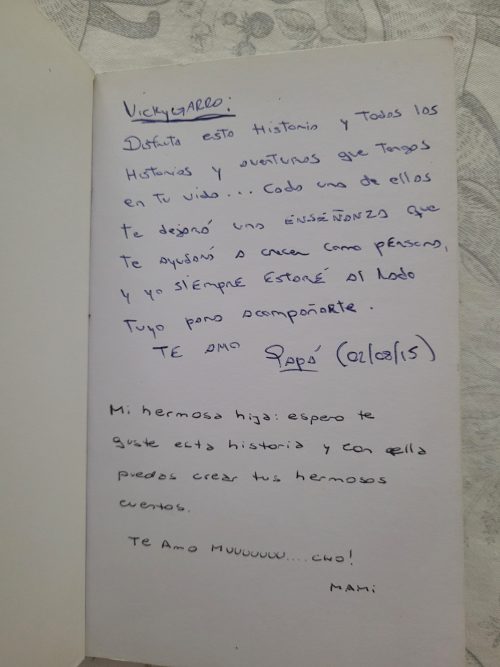 VICKYGARRO:
Disfruta esta Historia y todas las
Historias y aventuras que tengas
en tu vida... Cada una de ellas
te dejará una ENSEÑANZA que
te ayudará a crecer como PERSONA,
y yo SIEMPRE ESTARÉ al lado
tuyo para acompañarte.
TE amo Papá (02/08/15)
Mi hermosa hija: espero te
guste esta historia y con ella
puedas crear tus hermosos
cuentos.
Te Amo Muuuuuuu....cho!
MAMi